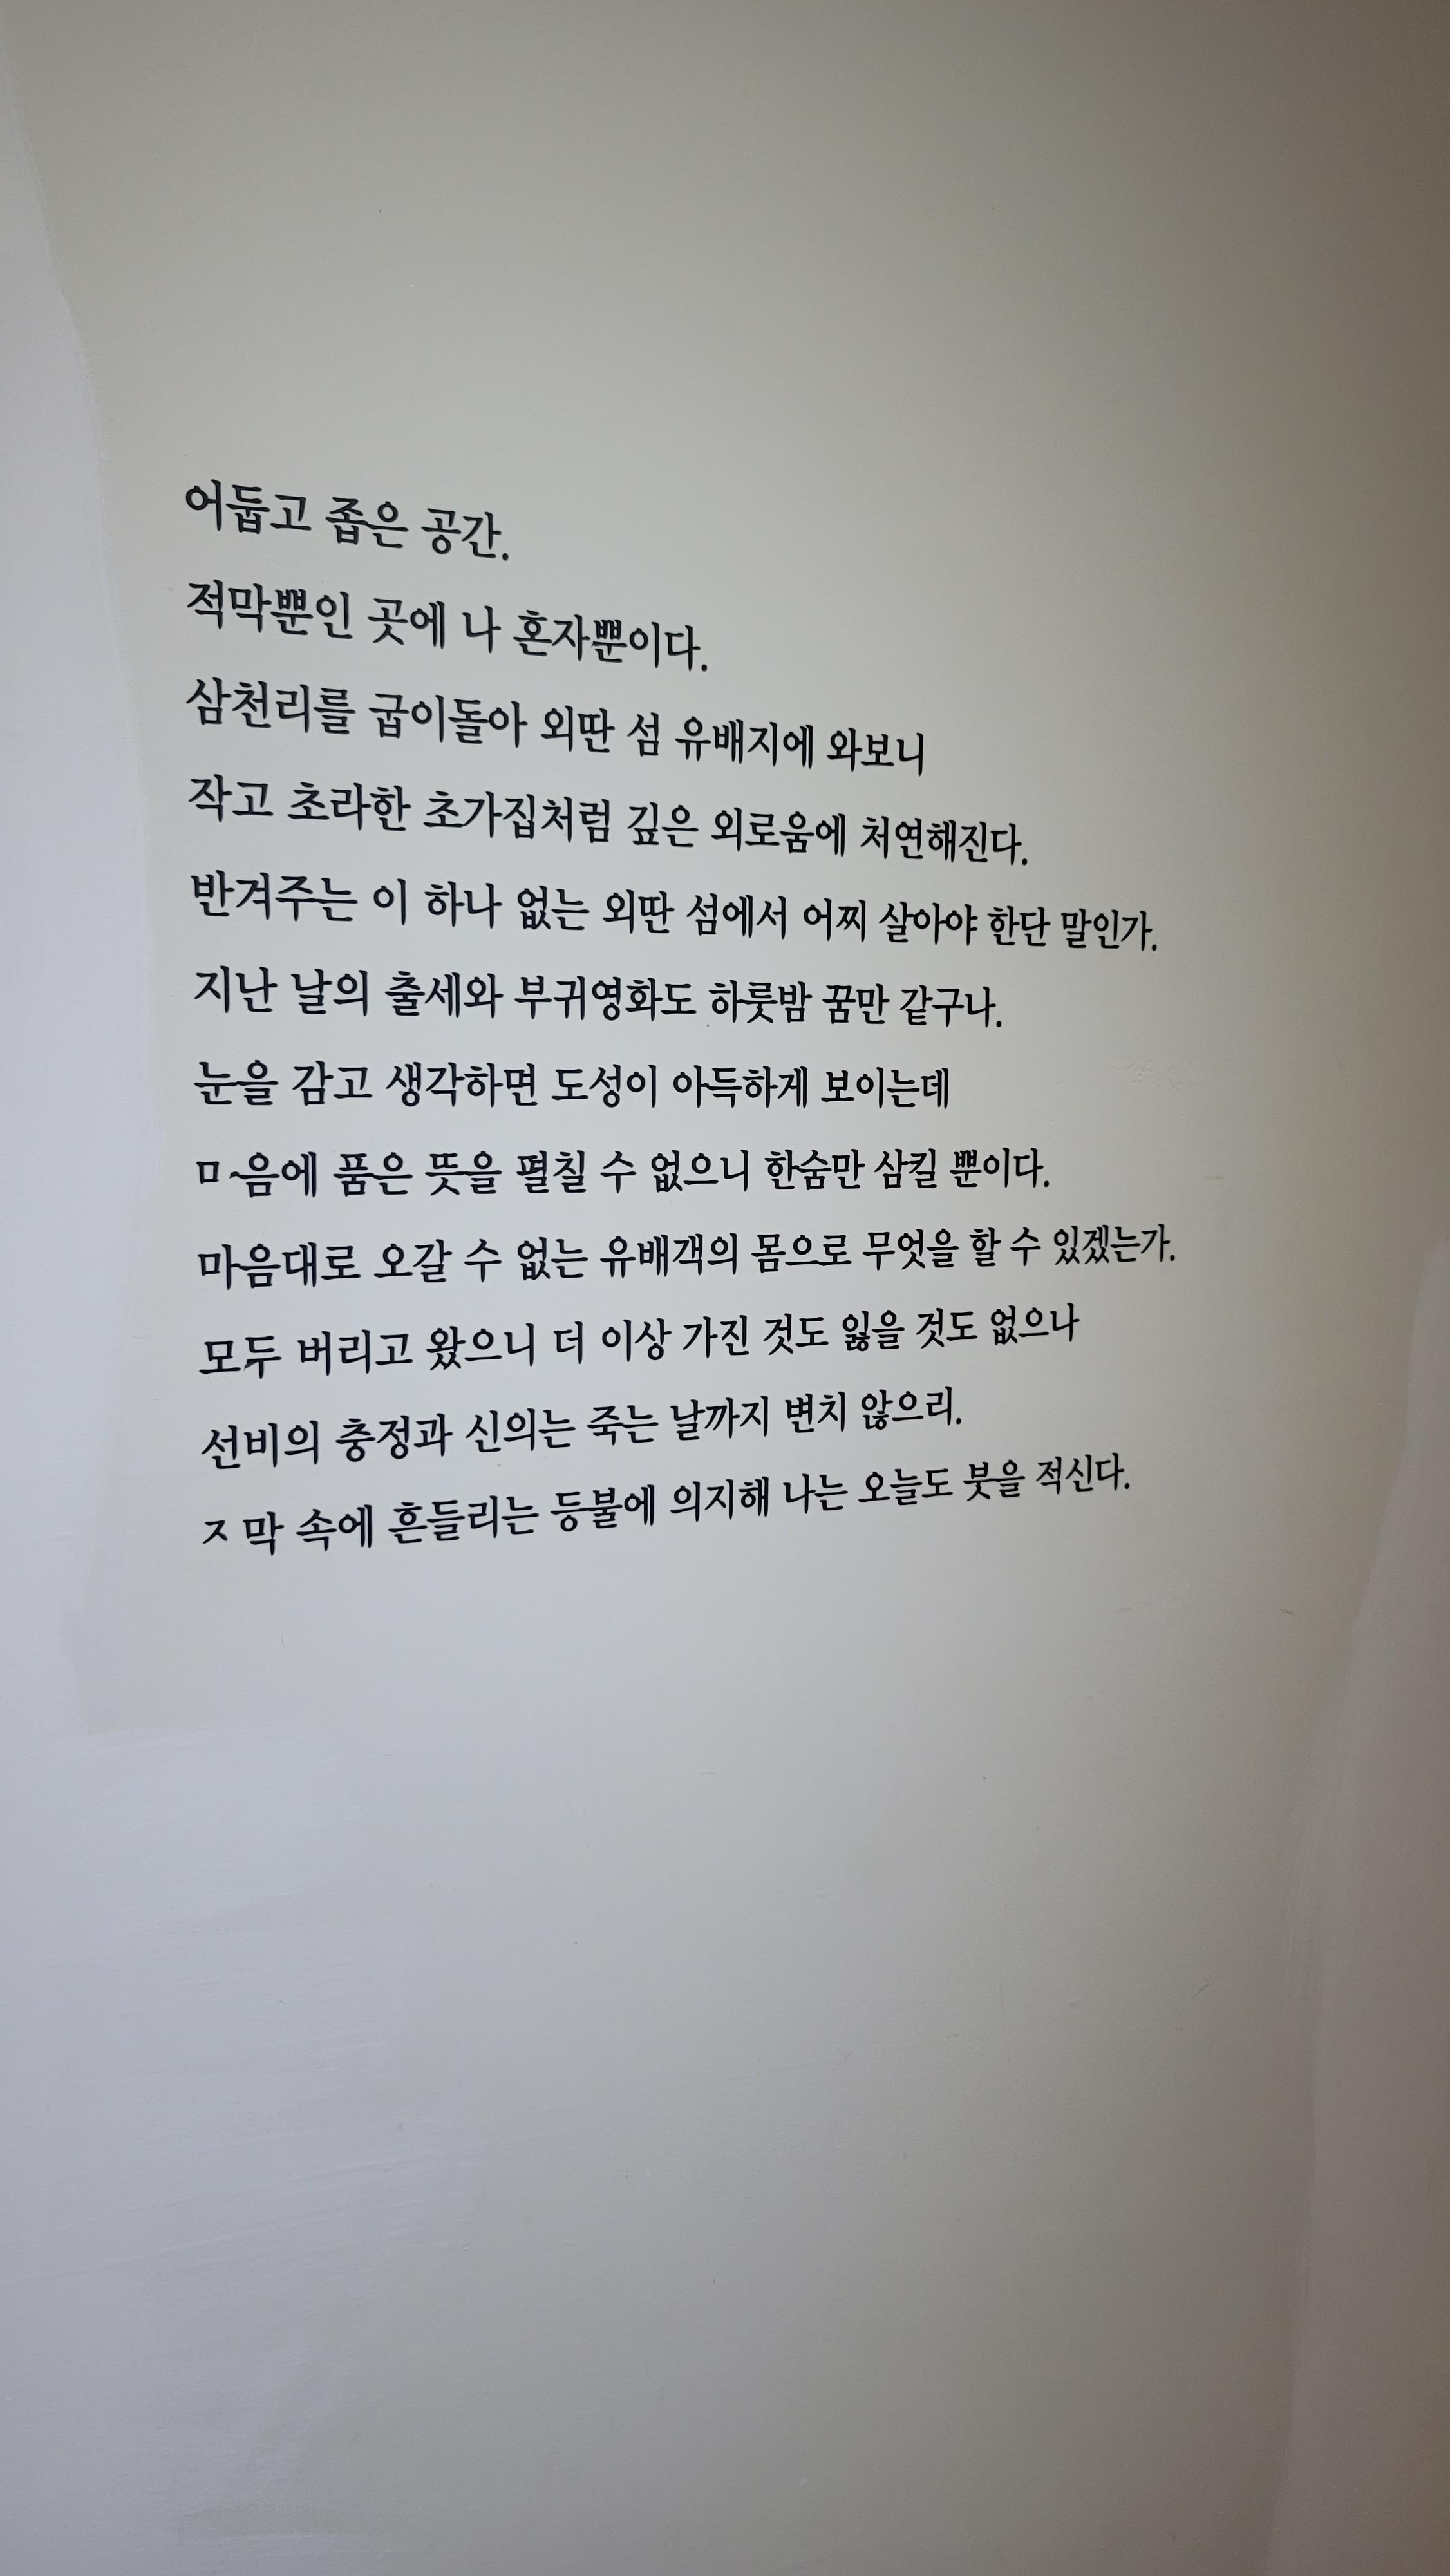 어둡고 좁은 공간.
적막뿐인 곳에 나 혼자뿐이다.
삼천리를 굽이돌아 외딴 섬 유배지에 와보니
작고 초라한 초가집처럼 깊은 외로움에 처연해진다.
반겨주는 이 하나 없는 외딴 섬에서 어찌 살아야 한단 말인가.
지난 날의 출세와 부귀영화도 하룻밤 꿈만 같구나.
눈을 감고 생각하면 도성이 아득하게 보이는데
품은 뜻을 펼칠 수 없으니 한숨만 삼킬 뿐이다.
마음대로 오갈 수 없는 유배객의 몸으로 무엇을 할 수 있겠는가.
모두 버리고 왔으니 더 이상 가진 것도 잃을 것도 없으나
선비의 충정과 신의는 죽는 날까지 변치 않으리.
속에 흔들리는 등불에 의지해 나는 오늘도 붓을 적신다.